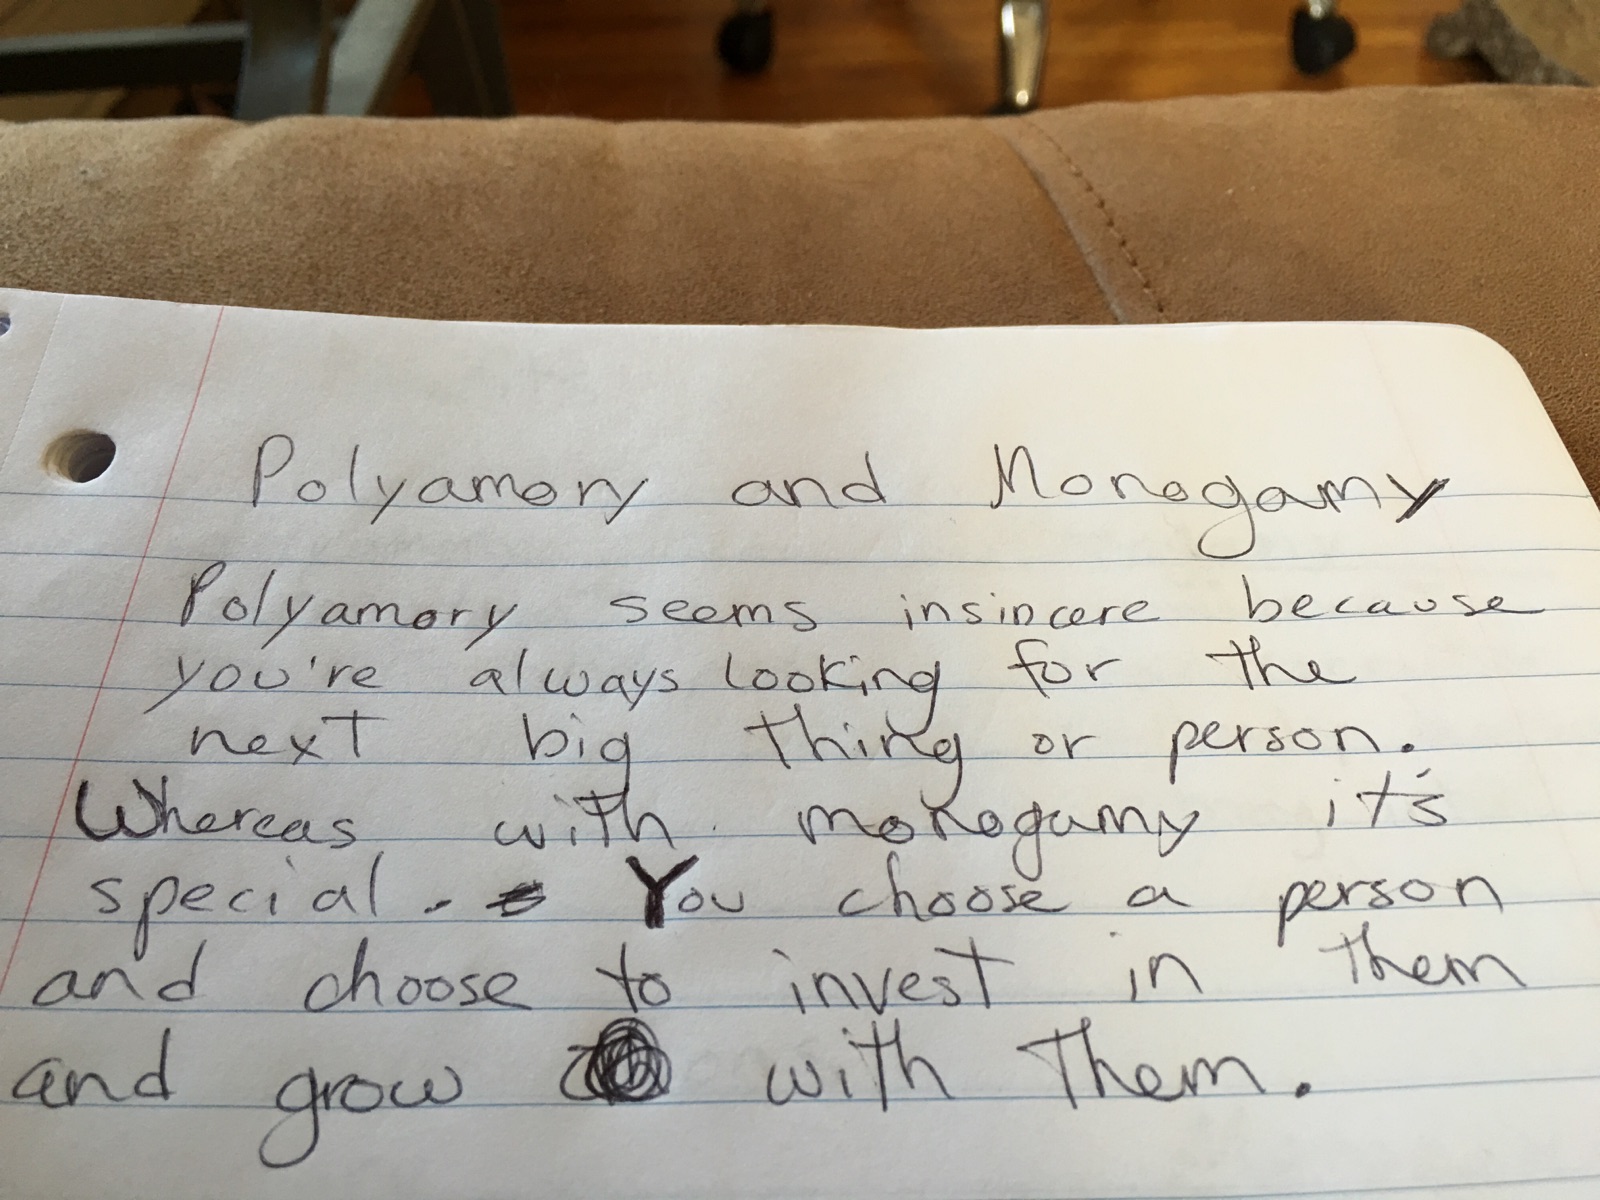 Polyamory and Monogamy
Polyamory seems insincere because
you're always looking for the
next big thing or person.
Whereas with monogamy it's
special. You choose a person
and choose to invest in them
and grow with them.